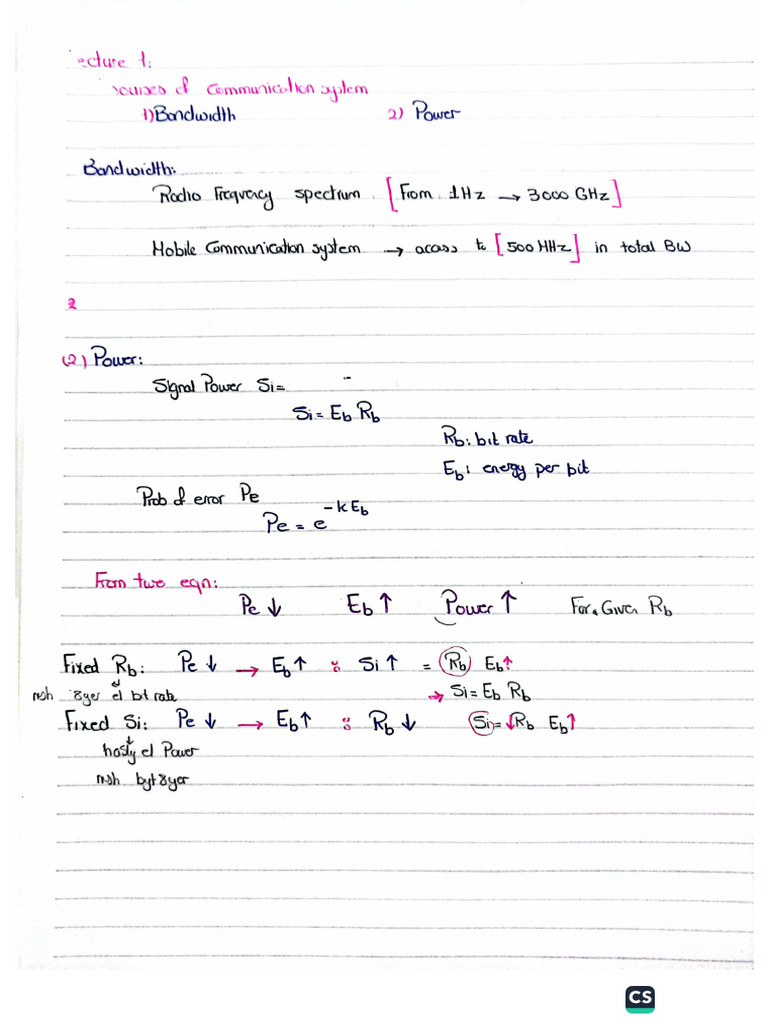 ecture 1:
sources of Communication system
1) Bandwidth 2) Power
Bandwidth:
Radio Frequency spectrum. [From 1Hz → 3000 GHz]
Mobile Communication system → acass to [500 MHz] in total BW
2
(2) Power:
Signal Power Si=
Si = Eb Rb
Rb: bit rate
Eb: energy per bit
Prob of error Pe
Pe = e^-k Eb
From two eqn:
Pe ↓ Eb ↑ Power ↑ For a Given Rb
Fixed Rb: Pe ↓ → Eb ↑ ∴ Si ↑ = Rb Eb ↑
msh 8yer el bit rate → Si = Eb Rb
Fixed Si: Pe ↓ → Eb ↑ ∴ Rb ↓ Si = ↓ Rb Eb ↑
el Power
msh byt8yer
CS